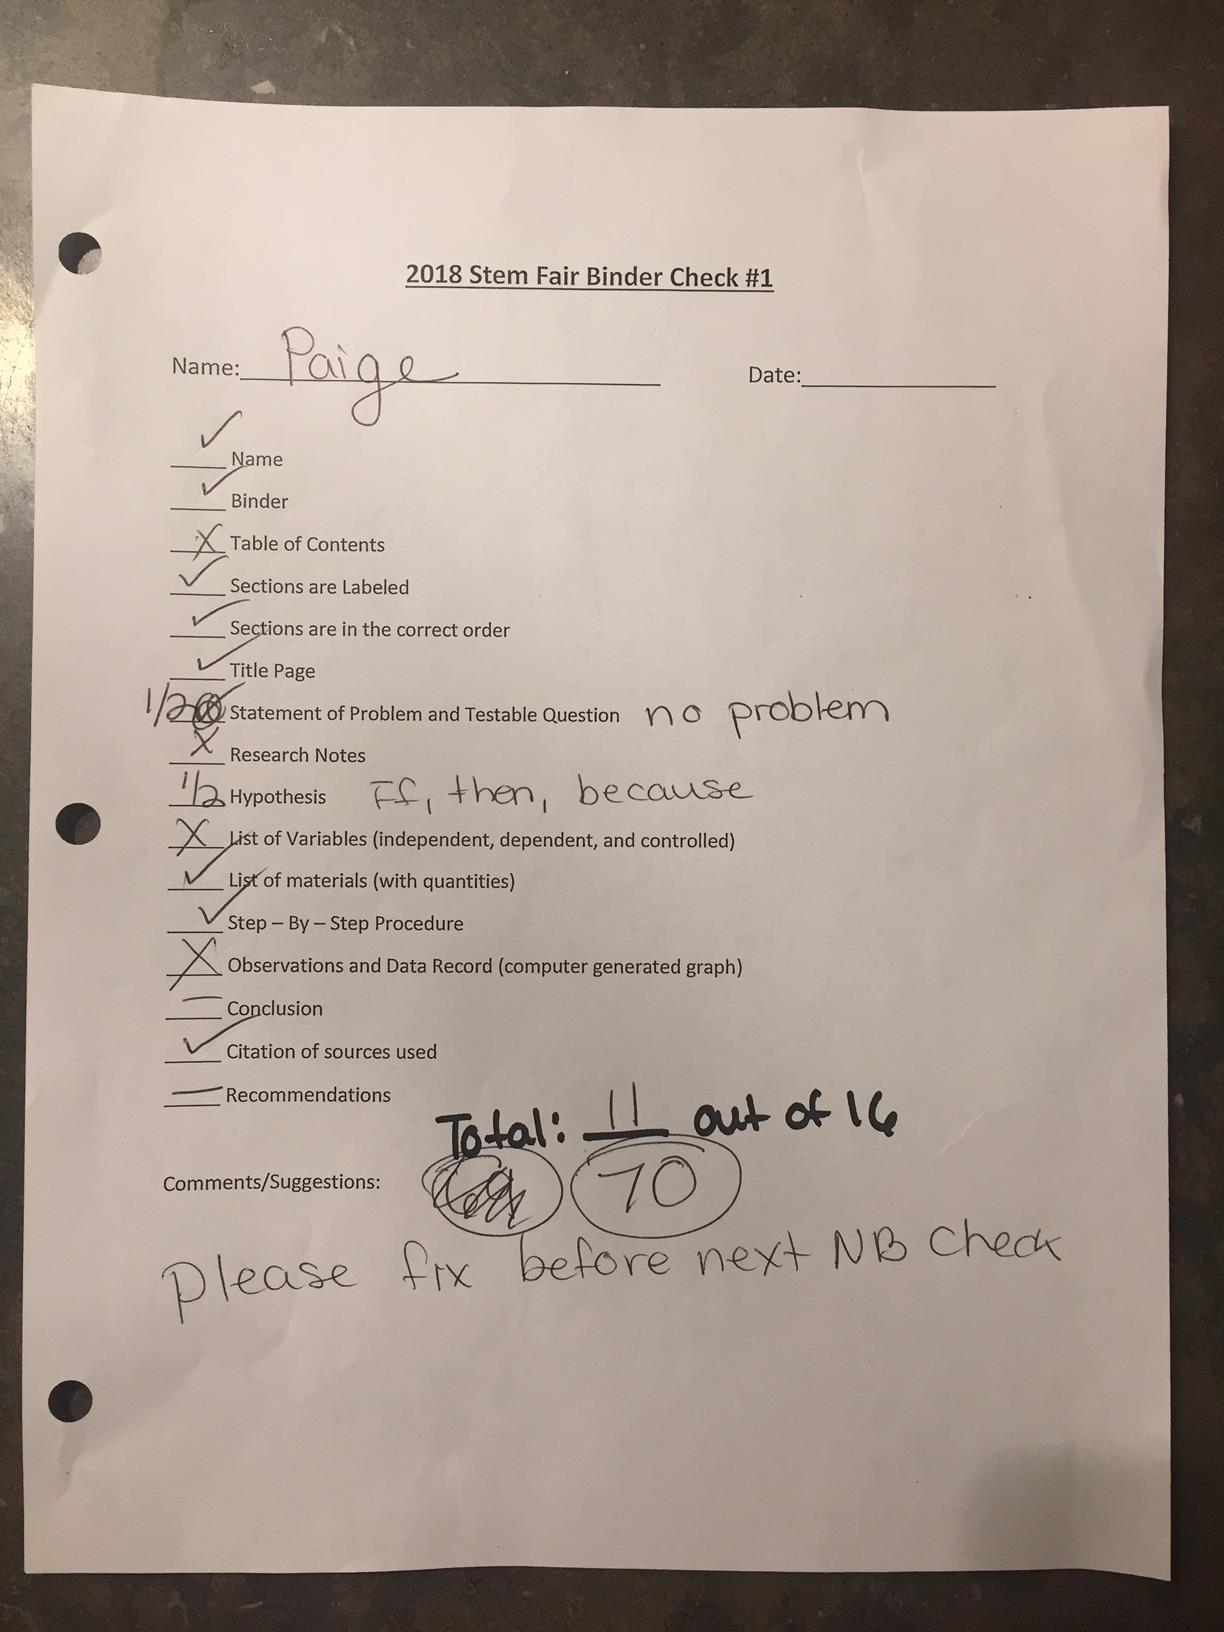 2018 Stem Fair Binder Check #1
Name: Paige Date:
✓ Name
✓ Binder
X Table of Contents
✓ Sections are Labeled
✓ Sections are in the correct order
✓ Title Page
1/2 Statement of Problem and Testable Question no problem
X Research Notes
1/2 Hypothesis If, then, because
X List of Variables (independent, dependent, and controlled)
✓ List of materials (with quantities)
✓ Step – By – Step Procedure
X Observations and Data Record (computer generated graph)
— Conclusion
✓ Citation of sources used
— Recommendations
Total: 11 out of 16
Comments/Suggestions: 70
please fix before next NB check